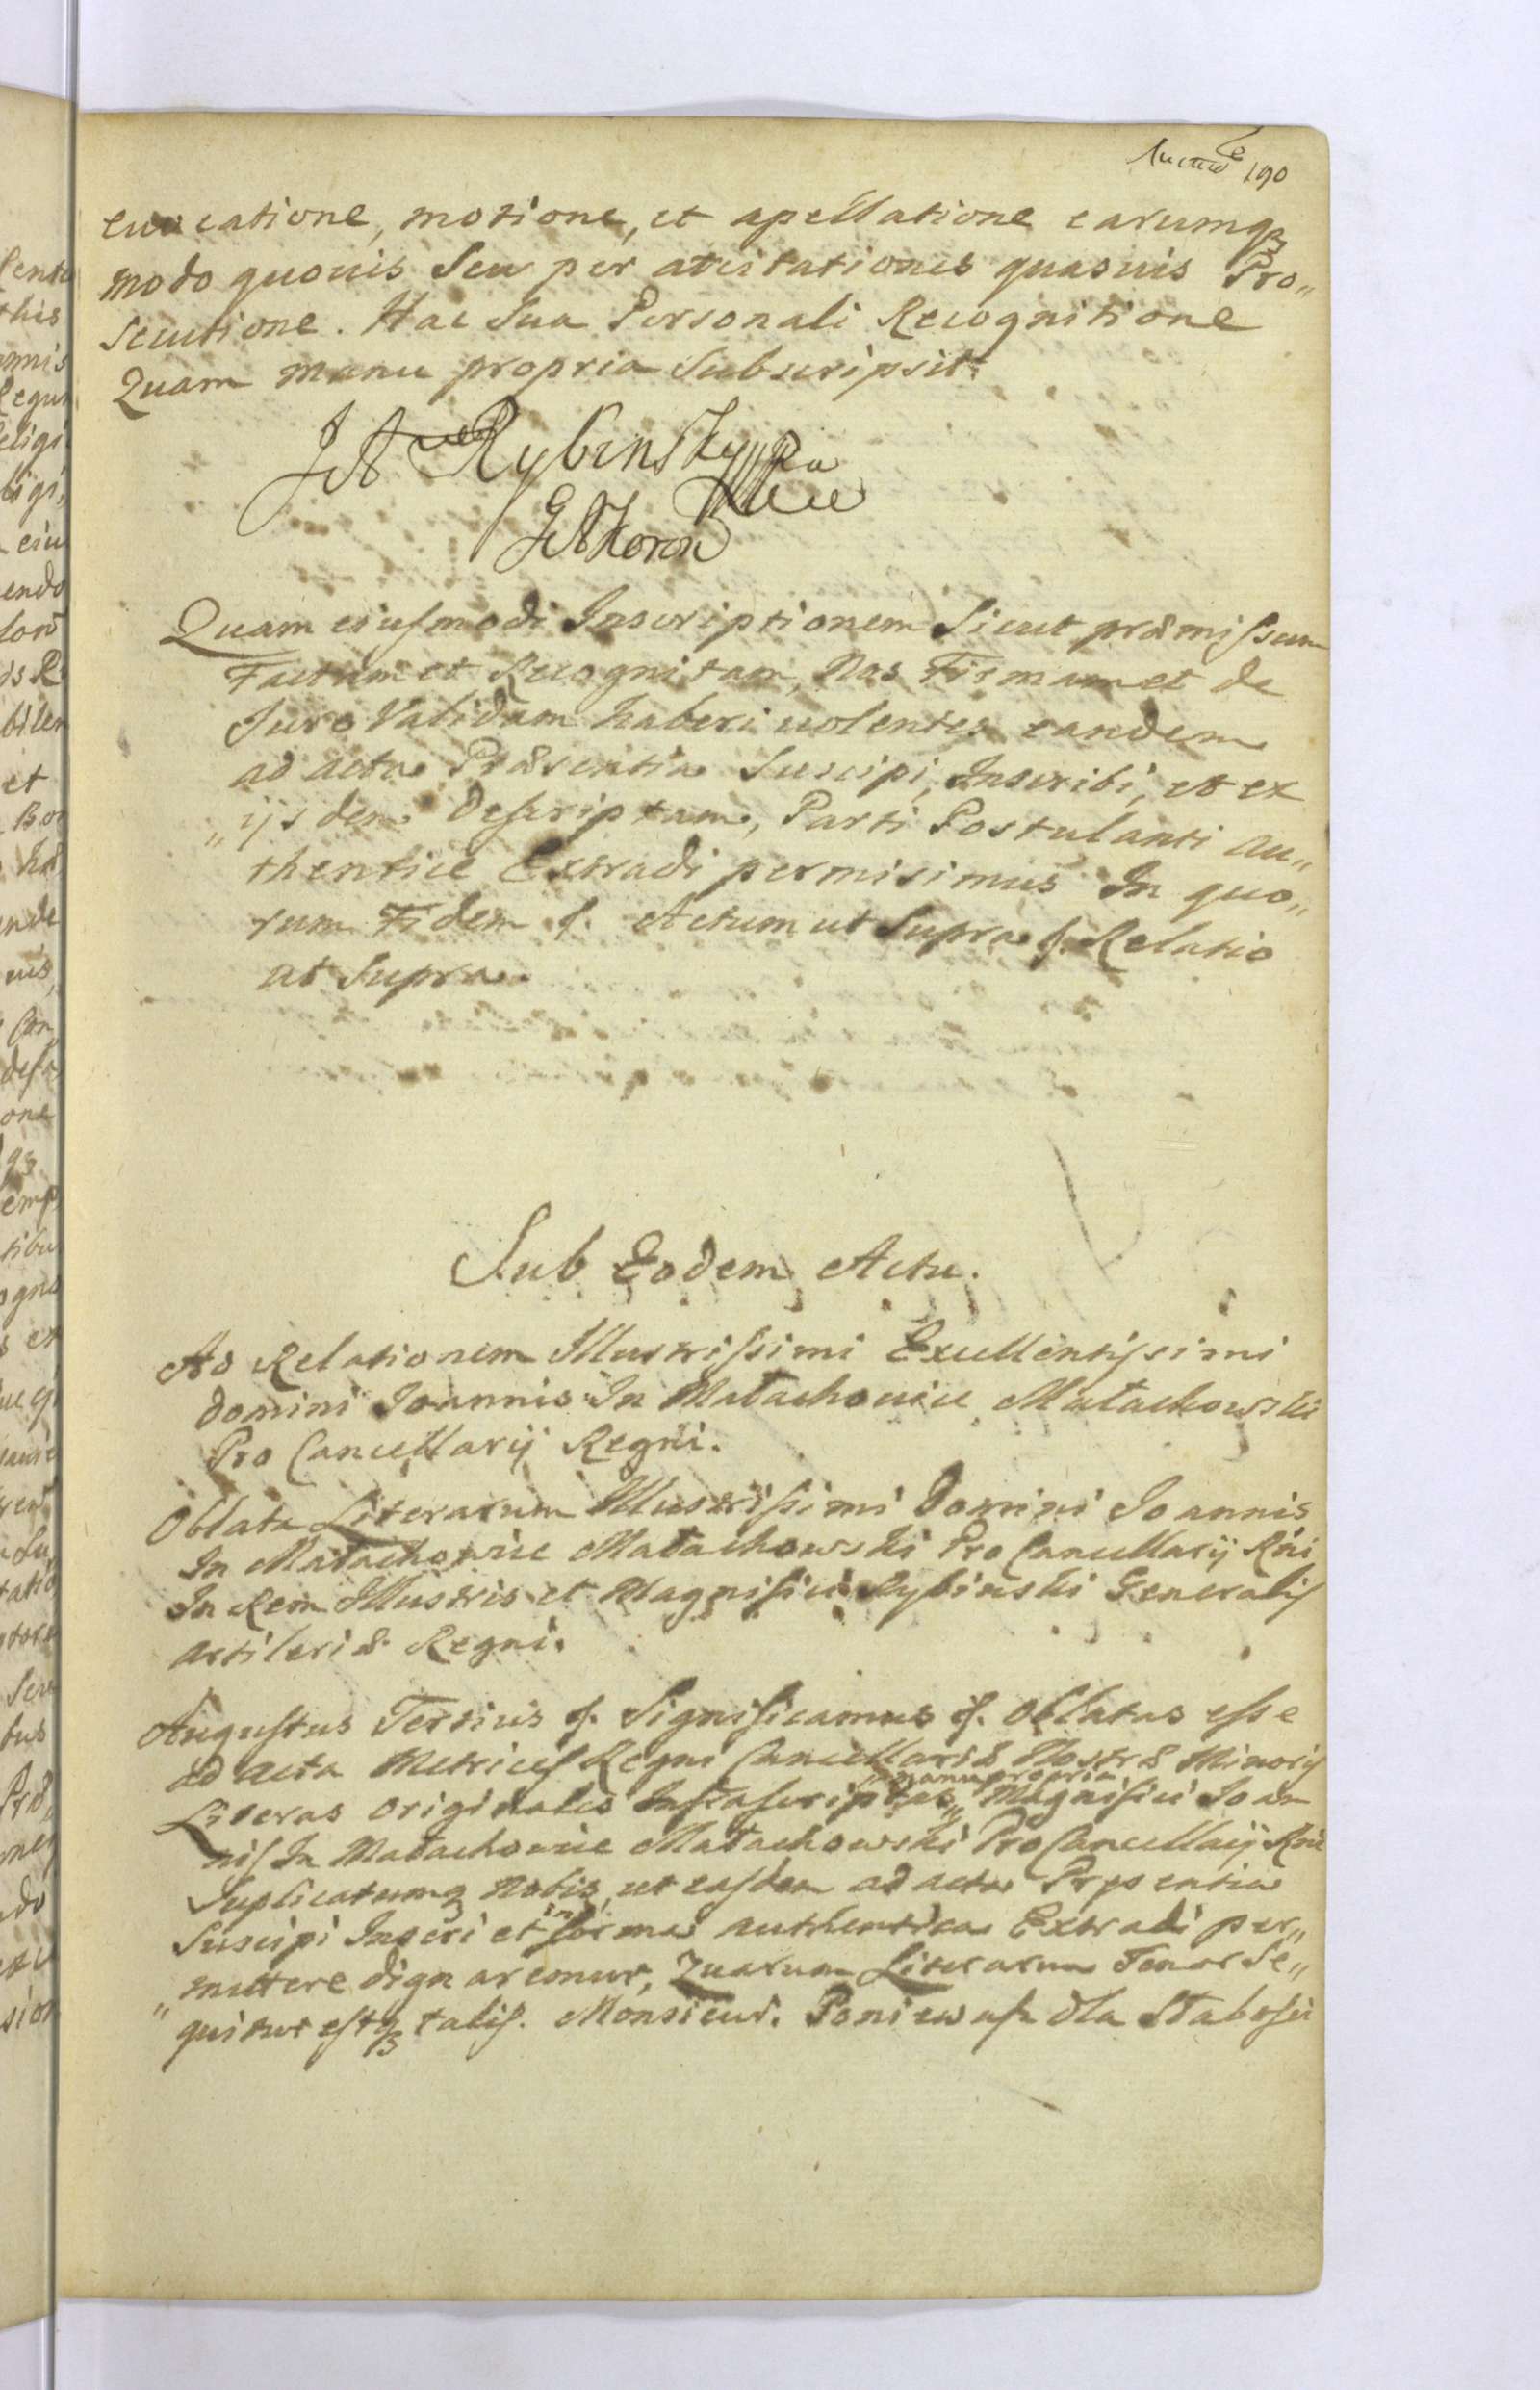 190
evocatione, motione, et apellatione earumqз
modo quouis Seu per attestationes quasuis Pro„
secutione. Hac Sua Personali Recognitione
Quam manu propria Subscripsit.
Rybinsky
GAKoron
Quam eiusmodi Inscriptionem Sicut præmissum
Factam et Recognitam, Nos Firmam et de
Jure Validam haberi uolentes eandem
ad acta Præsentia Suscipi, Inscribi, et ex
„ijsdem Descriptam, Parti Postulanti au„
thentice Extradi permisimus In quo„
rum Fidem f. Actum ut Supra f. Relatio
ut Supra.
Sub Eodem Actu.
Ad Relationem Illustrissimi Excellentissimi
Domini Joannis In Małachowice Małachowski
Pro Cancellarij Regni.
Oblata Literarum Illustrissimi Domini Joannis
In Małachowice Małachowski Pro Cancellarij Rñi
In Rem Illustris et Magnifici Rybinski Generalis
artileriæ Regni.
Augustus Tertius f. Significamus f. Oblatas esse
ad acta Metrices Regni Cancellariæ Nostræ Minoris
manu propria
Literas originales Infrascriptas „ Magnifici Joan
nis In Małachowice Małachowski Pro Cancellaij Rñi
Suplicatumqз Nobis, ut easdem ad acta Pręsentia
Suscipi Inseri et in forma authentica Extradi per„
„mittere dignaremur, Quarum Literarum Tenor Se„
quitur estqз talis. Monsieur. Poniewasz dla Słabosci